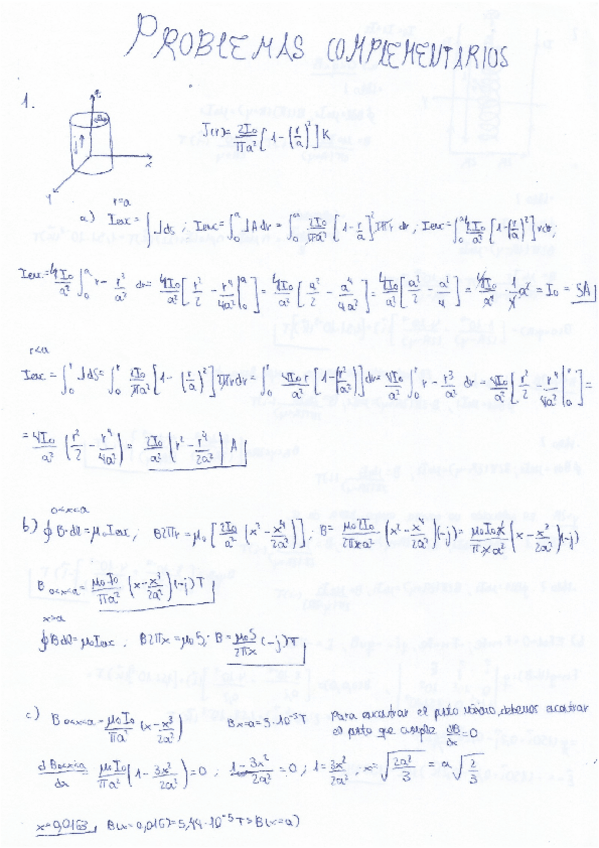 PROBLEMAS COMPLEMENTARIOS
1.
J(r)= 2I₀/πa² [1-(r/a)²] K
r=a
a) Ienc=∫JdS; Ienc=∫₀ᵃ JA dr = ∫₀ᵃ 2I₀/πa² [1-r/a]² 2πr dr; Ienc=∫₀ᵃ 4I₀/a² [1-(r/a)²] r dr;
Ienc= 4I₀/a² ∫₀ᵃ r - r³/a² dr = 4I₀/a² [r²/2 - r⁴/4a² |₀ᵃ] = 4I₀/a² [a²/2 - a⁴/4a²] = 4I₀/a² [a²/2 - a²/4] = 4I₀/a² · 1/4 a² = I₀ = 5A
r<a
Ienc=∫₀ʳ JdS= ∫₀ʳ 2I₀/πa² [1-(r/a)²] 2πr dr= ∫₀ʳ 4I₀r/a² [1-(r²/a²)] dr= 4I₀/a² ∫₀ʳ r - r³/a² dr = 4I₀/a² [r²/2 - r⁴/4a² |₀ʳ] =
= 4I₀/a² (r²/2 - r⁴/4a²) = 2I₀/a² (r² - r⁴/2a²) A
0<x<a
b) ∮B·dl=μ₀Ienc; B2πr=μ₀ [2I₀/a² (x² - x⁴/2a²)]; B= μ₀2I₀/2πxa² (x² - x⁴/2a²)(-j)= μ₀I₀x/πxa² (x - x³/2a²)(-j)
B 0<x<a = μ₀I₀/πa² (x - x³/2a²)(-j) T
x>a
∮Bdl=μ₀Ienc. B2πx=μ₀5; B= μ₀5/2πx (-j) T
c) B 0<x<a = μ₀I₀/πa² (x - x³/2a²) Bx=a=5·10⁻⁵T Para encontrar el punto máximo, debemos encontrar
el punto que cumpla dB/dx=0
dB0<x<a/dx = μ₀I₀/πa² (1 - 3x²/2a²)=0; 1 - 3x²/2a² =0; 1= 3x²/2a²; x=√(2a²/3) = a√(2/3)
x=0,0163, B(x=0,0163)=5,44·10⁻⁵T>B(x=a)